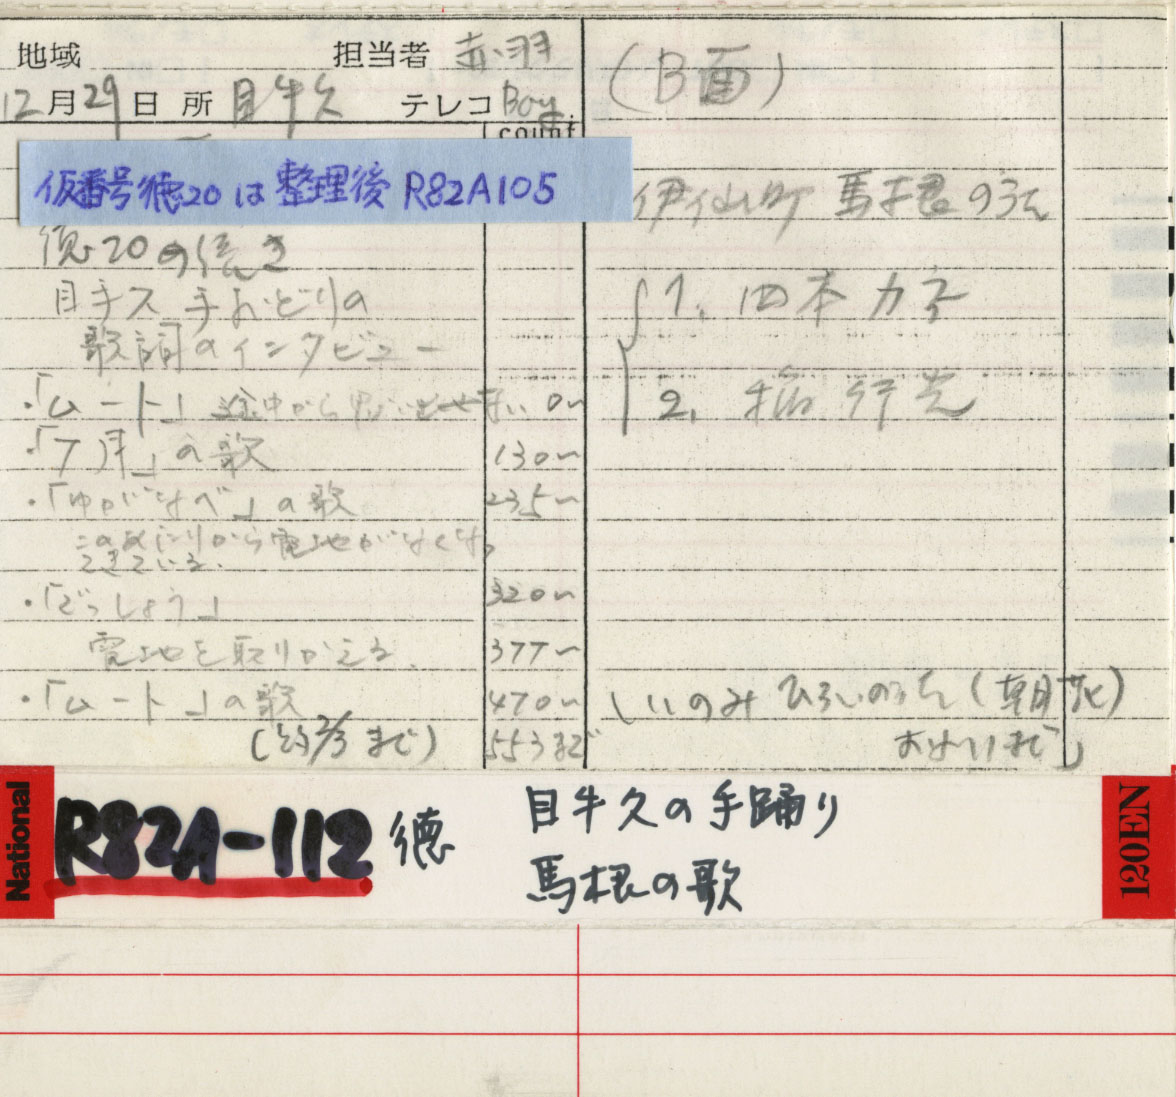 地域 担当者 赤羽
12月29日 所 目手久 テレコ Boy.
count
仮番号徳20は整理後 R82A105
徳20の続き
目手久 手おどりの
歌詞のインタビュー
・「ムート」途中から 0〜
・「7月」の歌 130〜
・「ゆがなべ」の歌 235〜
このあたりから電池がなくな
てきている.
・「どっしょう」 320〜
電池を取りかえる. 377〜
・「ムート」の歌 470〜
(2/3まで) 553まで
(B面)
伊仙町 馬根のうた
1. 四本 カ子
2. 稲 行光
しいのみ ひろいのうた(朝花)
National
R82A-112 徳
目手久の手踊り
馬根の歌
120EN